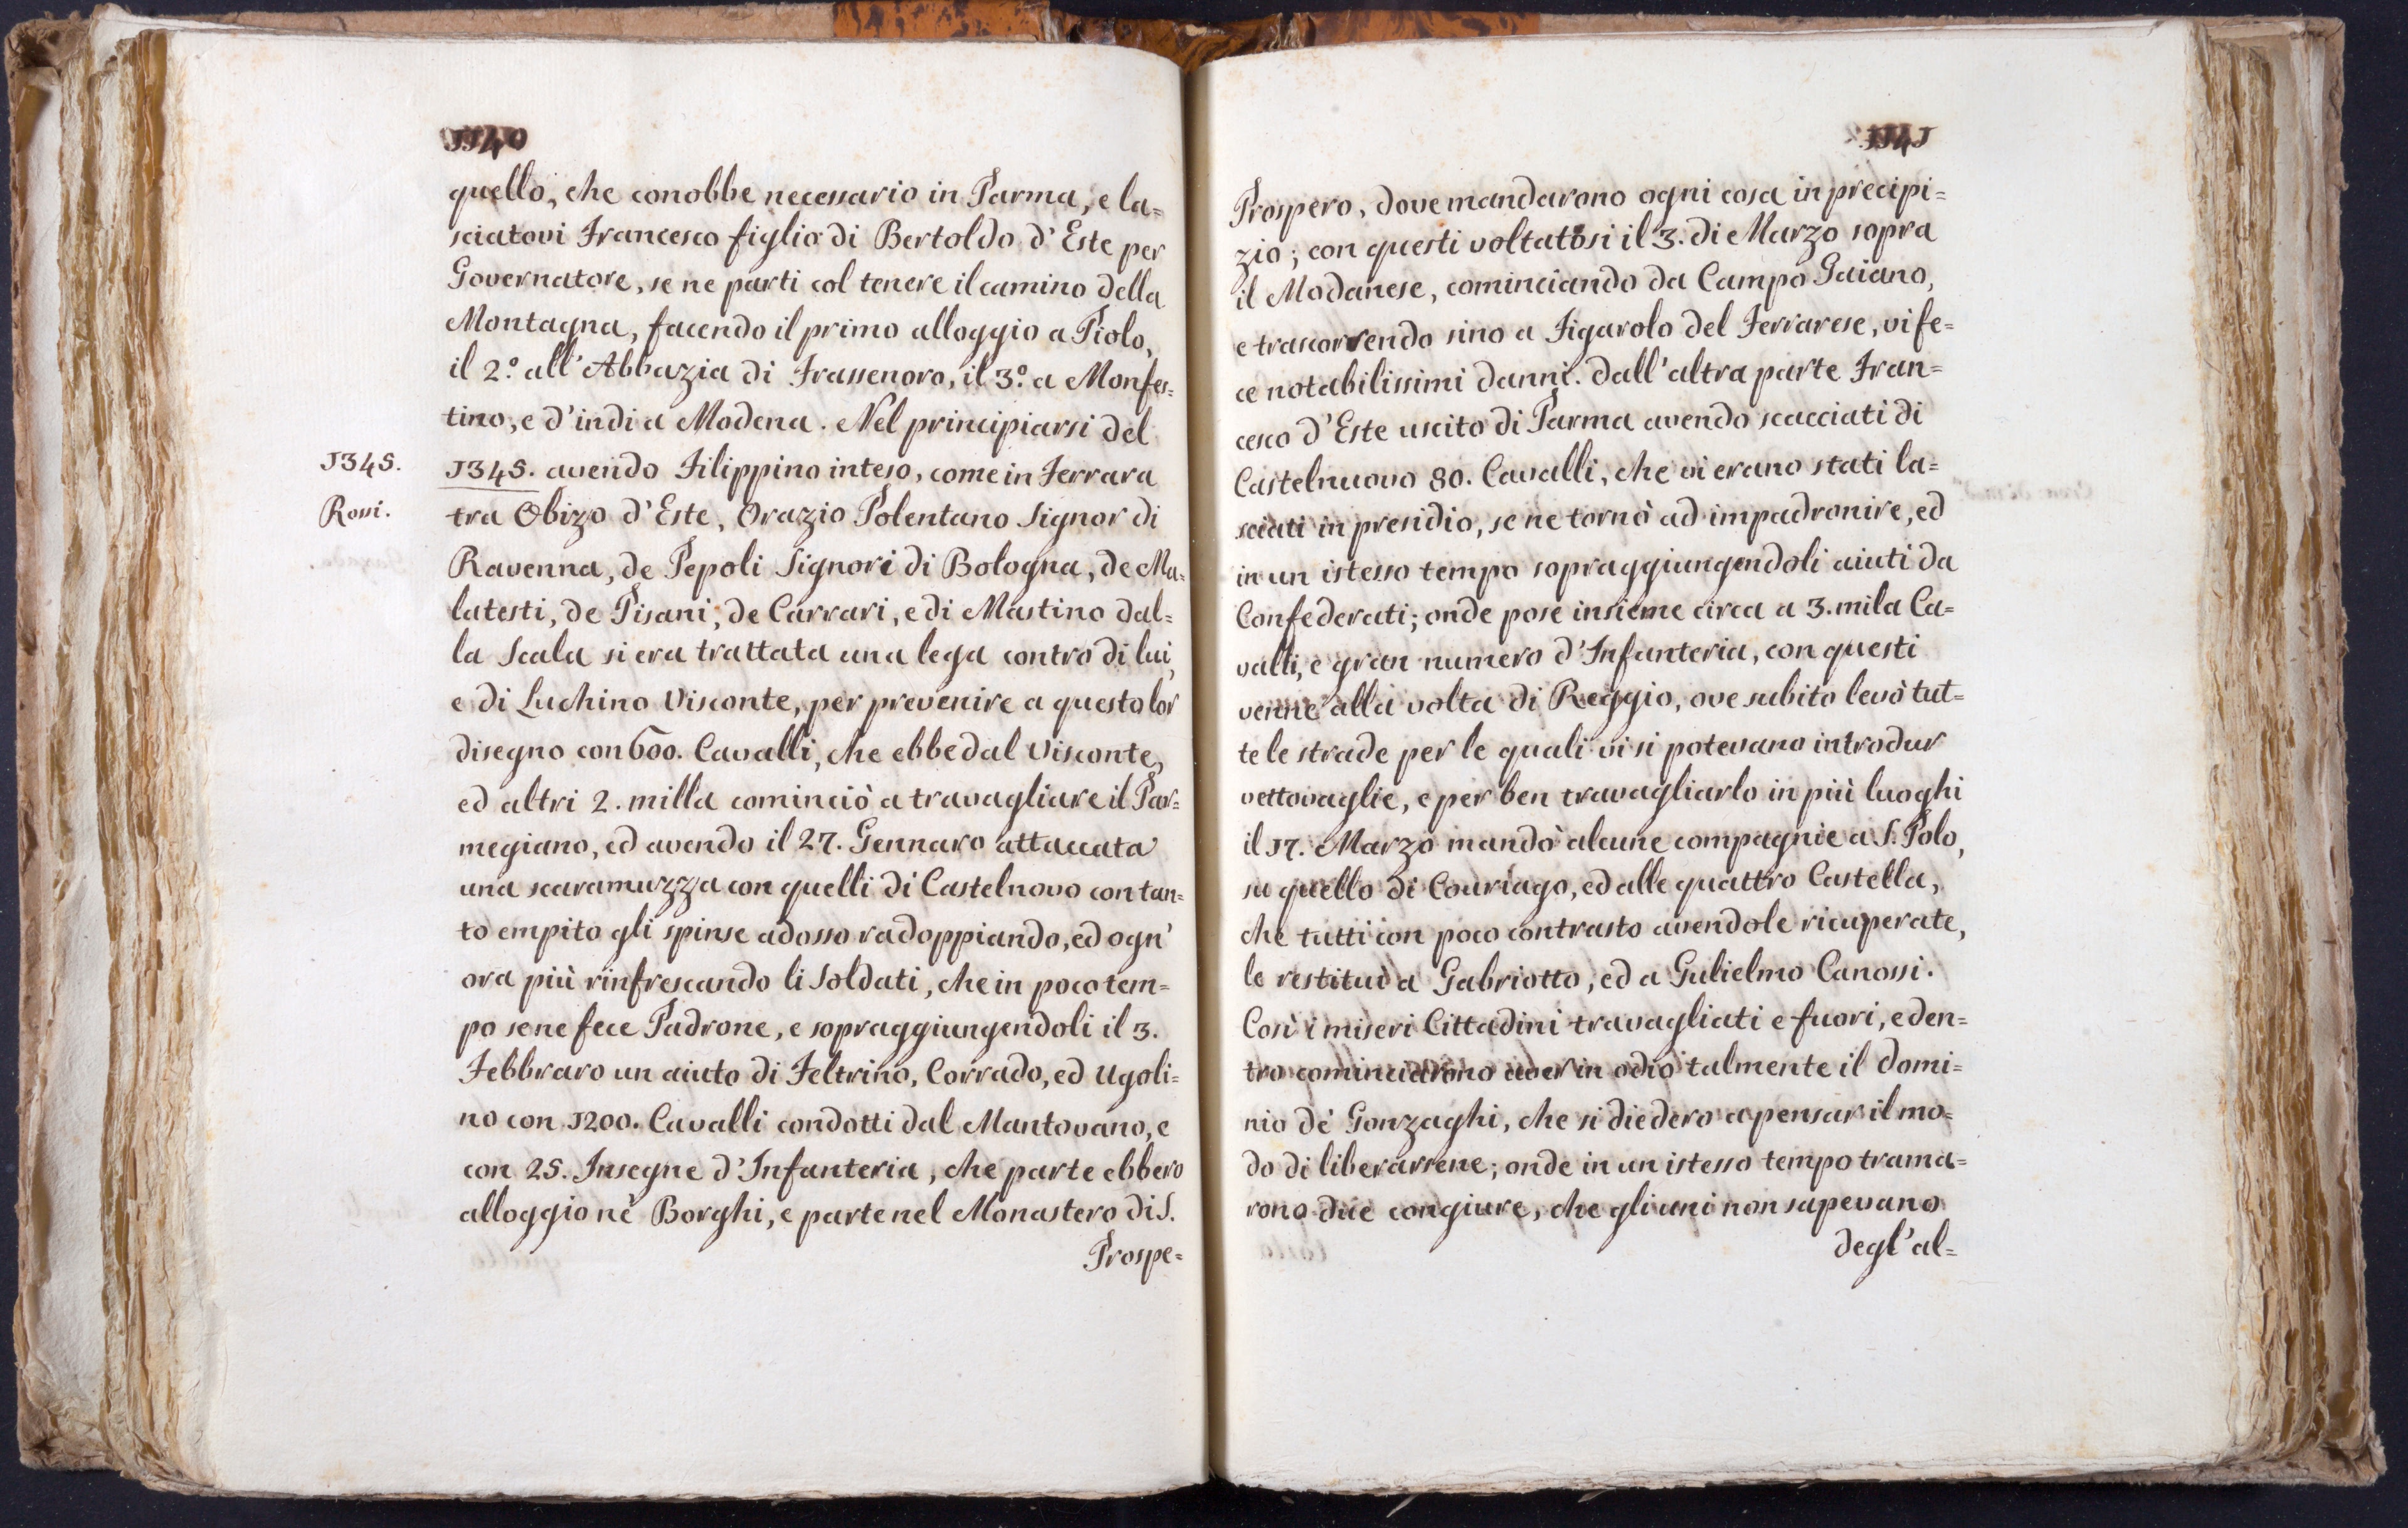 1140
quello, che conobbe necessario in Parma, e la=
sciatovi Francesco figlio di Bertoldo d'Este per
Governatore, se ne parti col tenere il camino della
Montagna, facendo il primo alloggio a Piolo,
il 2.º all'Abbazia di Frassenoro, il 3.º a Monfes=
tino, e d'indi a Modena. Nel principiarsi del
1345.
1345. avendo Filippino inteso, come in Ferrara
Rossi.
tra Obizo d'Este, Orazio Polentano Signor di
Ravenna, de Pepoli Signori di Bologna, de Ma=
latesti, de Pisani, de Carrari, e di Mastino dal=
la Scala si era trattata una lega contro di lui,
e di Luchino Visconte, per prevenire a questo lor
disegno con 600. Cavalli, che ebbe dal Visconte,
ed altri 2. milla cominciò a travagliare il Par=
megiano, ed avendo il 27. Gennaro attaccata
una scaramuzza con quelli di Castelnovo con tan=
to empito gli spinse adosso radoppiando, ed ogn'
ora più rinfrescando li Soldati, che in poco tem=
po se ne fece Padrone, e sopraggiungendoli il 3.
Febbraro un aiuto di Feltrino, Corrado, ed Ugoli=
no con 1200. Cavalli condotti dal Mantovano, e
con 25. Insegne d'Infanteria, che parte ebbero
alloggio nè Borghi, e parte nel Monastero di S.
Prospe=
1141
Prospero, dove mandarono ogni cosa in precipi=
zio; con questi voltatosi il 3. di Marzo sopra
il Modanese, cominciando da Campo Gaiano,
e trascorrendo sino a Figarolo del Ferrarese, vi fe=
ce notabilissimi danni. Dall'altra parte Fran=
cesco d'Este uscito di Parma avendo scacciati di
Castelnuovo 80. Cavalli, che vi erano stati la=
sciati in presidio, se ne tornò ad impadronire, ed
in un istesso tempo sopraggiungendoli aiuti da
Confederati; onde pose insieme circa a 3. mila Ca=
valli, e gran numero d'Infanteria, con questi
venne alla volta di Reggio, ove subito levò tut=
te le strade per le quali vi si potevano introdur
vettovaglie, e per ben travagliarlo in più luoghi
il 17. Marzo mandò alcune compagnie a S. Polo,
su quello di Couriago, ed alle quattro Castella,
che tutti con poco contrasto avendole ricuperate,
le restituì a Gabriotto, ed a Gulielmo Canossi.
Così i miseri Cittadini travagliati e fuori, e den=
tro cominciarono aver in odio talmente il domi=
nio dè Gonzaghi, che si diedero a pensar il mo=
do di liberarsene; onde in un istesso tempo trama=
rono due congiure, che gli uni non sapevano
degl'al=